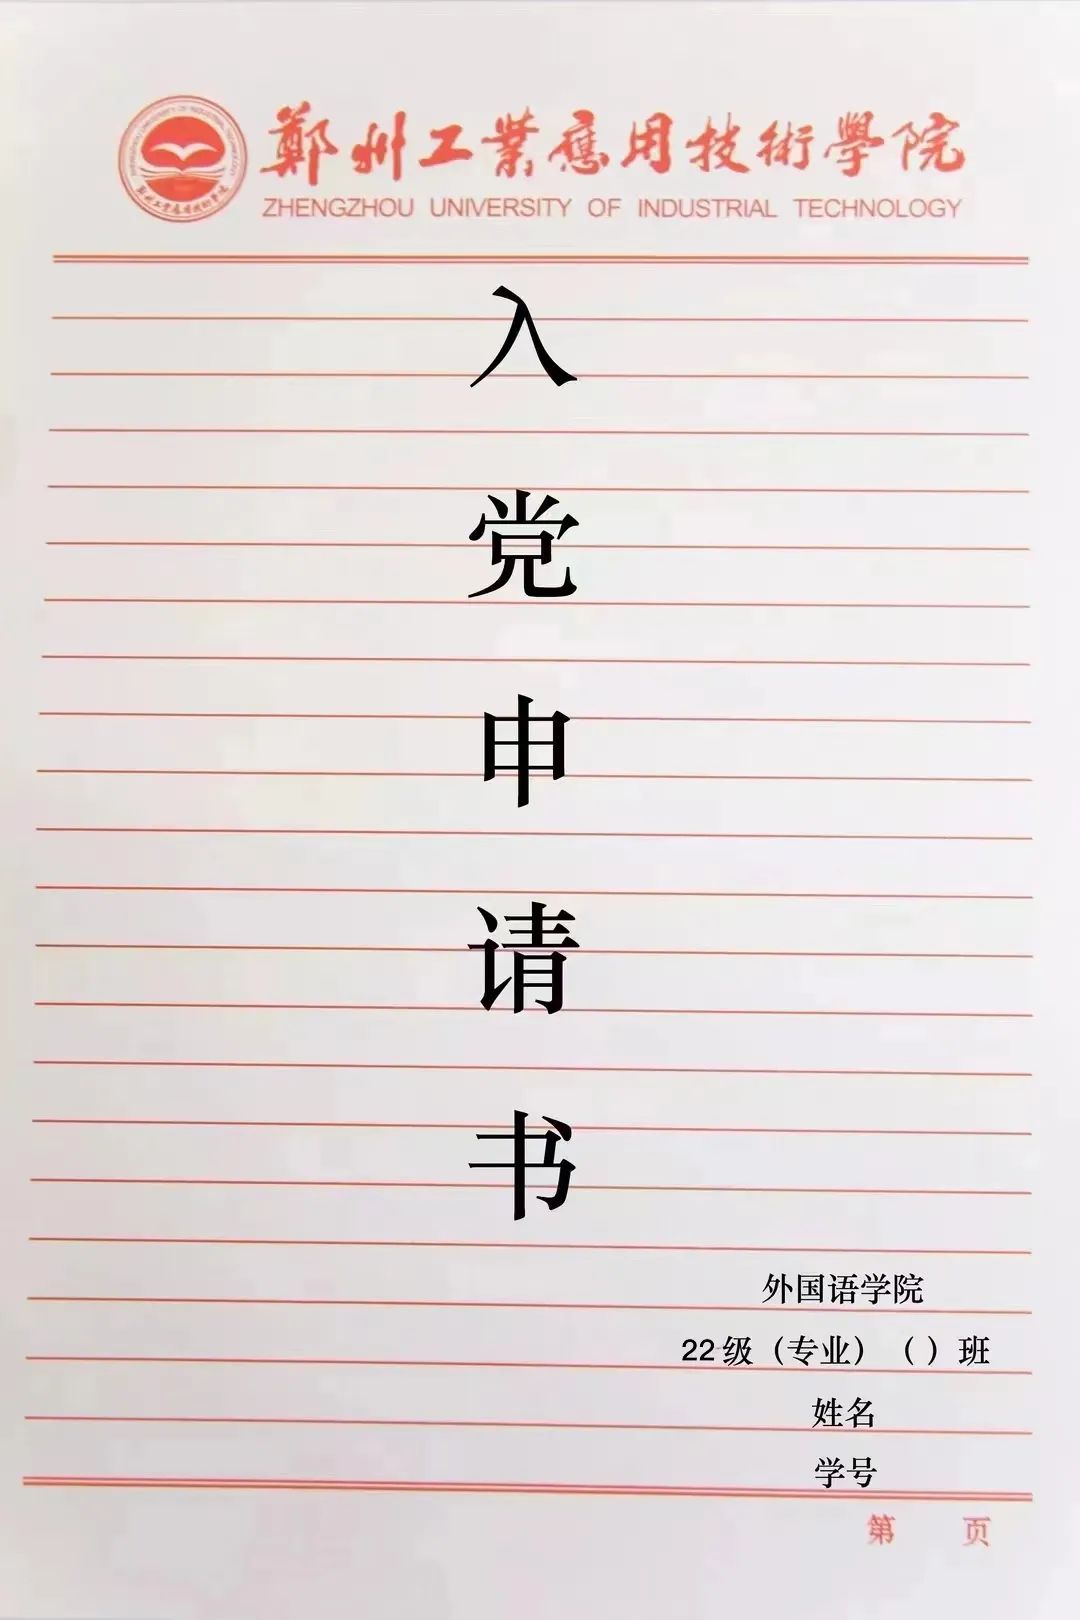 鄭州工業應用技術學院
ZHENGZHOU UNIVERSITY OF INDUSTRIAL TECHNOLOGY
入
党
申
请
书
外国语学院
22级（专业）（）班
姓名
学号
第 页